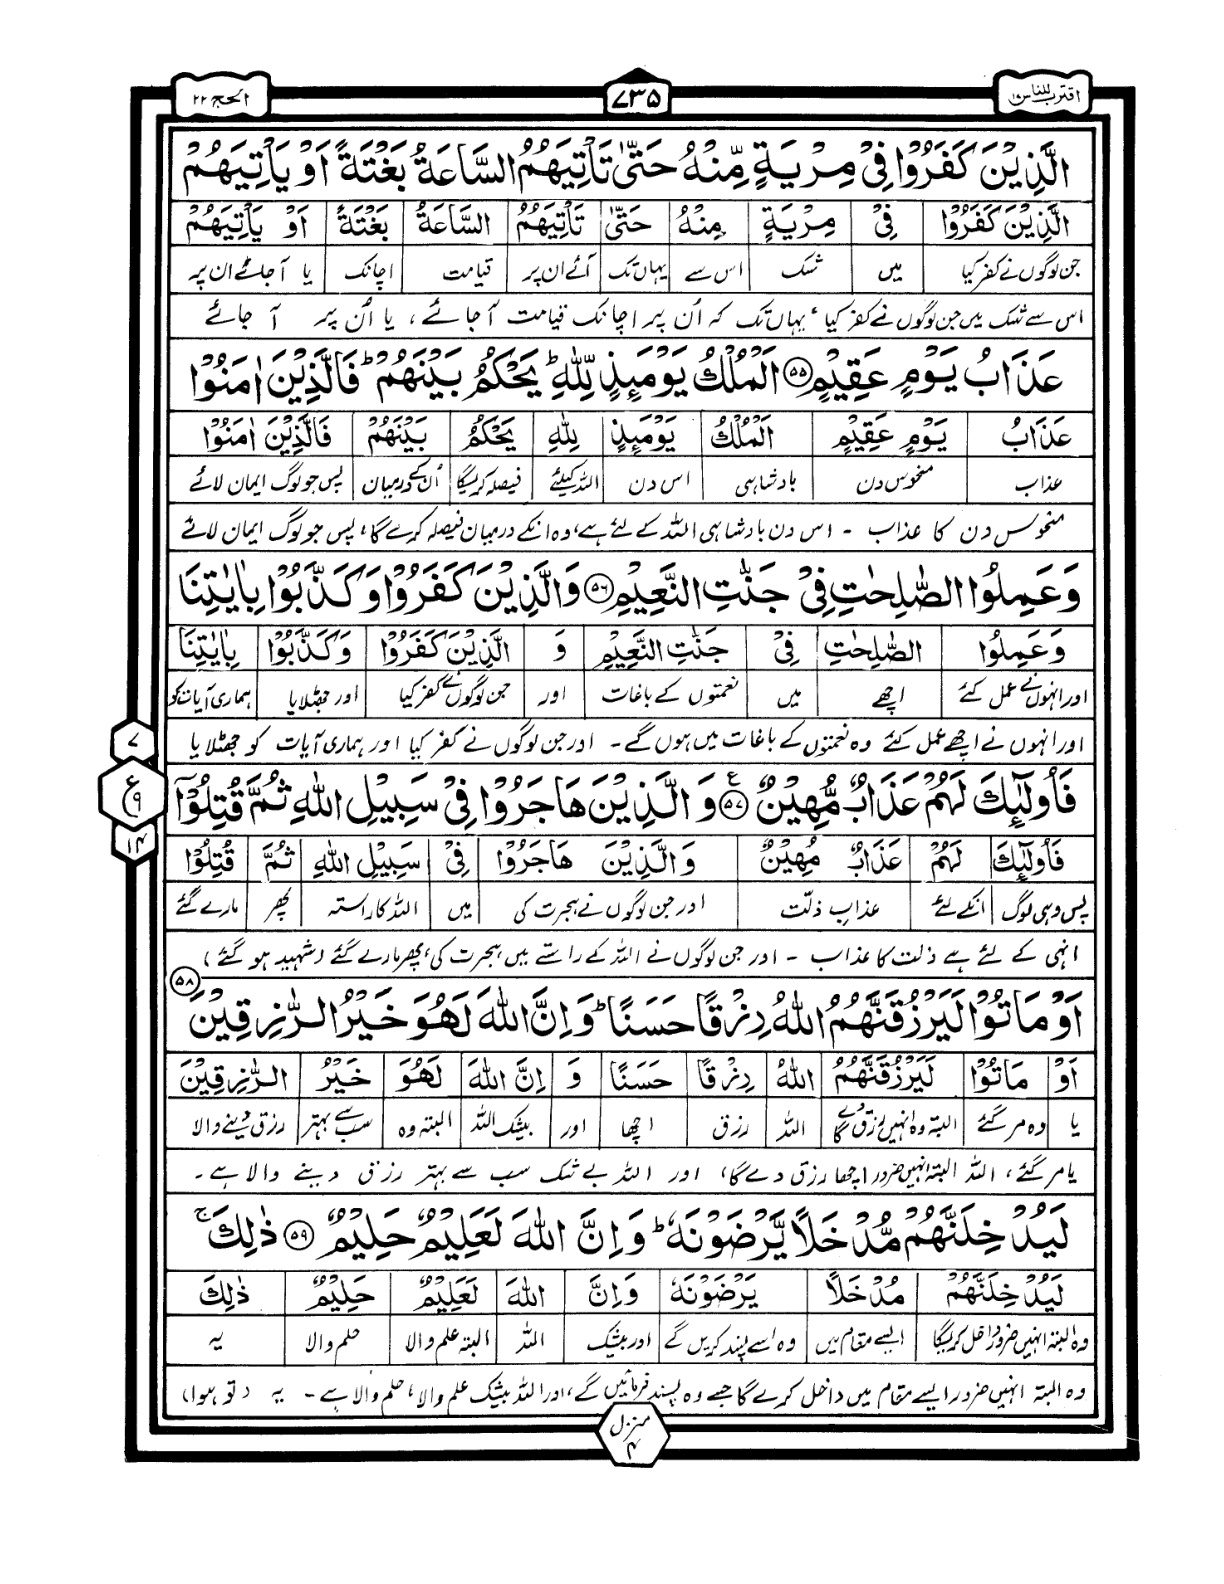 اقترب للناس ۱۷
۷۳۵
الحج ۲۲
الَّذِيْنَ كَفَرُوْا فِيْ مِرْيَةٍ مِّنْهُ حَتّٰى تَاْتِيَهُمُ السَّاعَةُ بَغْتَةً اَوْ يَاْتِيَهُمْ
الَّذِيْنَ كَفَرُوْا فِيْ مِرْيَةٍ مِنْهُ حَتّٰى تَاْتِيَهُمُ السَّاعَةُ بَغْتَةً اَوْ يَاْتِيَهُمْ
جن لوگوں نے کفر کیا میں شک اس سے یہاں تک آئے ان پر قیامت اچانک یا آجائے ان پر
اس سے شک میں جن لوگوں نے کفر کیا، یہاں تک کہ اُن پر اچانک قیامت آجائے، یا اُن پر آ جائے
عَذَابُ يَوْمٍ عَقِيْمٍ ۵۵ اَلْمُلْكُ يَوْمَئِذٍ لِّلّٰهِ ؕ يَحْكُمُ بَيْنَهُمْ ؕ فَالَّذِيْنَ اٰمَنُوْا
عَذَابُ يَوْمٍ عَقِيْمٍ اَلْمُلْكُ يَوْمَئِذٍ لِلّٰهِ يَحْكُمُ بَيْنَهُمْ فَالَّذِيْنَ اٰمَنُوْا
عذاب منحوس دن بادشاہی اس دن اللہ کیلئے فیصلہ کریگا اُن کے درمیان پس جو لوگ ایمان لائے
منحوس دن کا عذاب ۔ اس دن بادشاہی اللہ کے لئے ہے، وہ انکے درمیان فیصلہ کرے گا، پس جو لوگ ایمان لائے
وَعَمِلُوا الصّٰلِحٰتِ فِيْ جَنّٰتِ النَّعِيْمِ ۵۶ وَالَّذِيْنَ كَفَرُوْا وَكَذَّبُوْا بِاٰيٰتِنَا
وَعَمِلُوا الصّٰلِحٰتِ فِيْ جَنّٰتِ النَّعِيْمِ وَ الَّذِيْنَ كَفَرُوْا وَكَذَّبُوْا بِاٰيٰتِنَا
اور انہوں نے عمل کئے اچھے میں نعمتوں کے باغات اور جن لوگوں نے کفر کیا اور جھٹلایا ہماری آیات کو
اور انہوں نے اچھے عمل کئے وہ نعمتوں کے باغات میں ہوں گے۔ اور جن لوگوں نے کفر کیا اور ہماری آیات کو جھٹلایا
۷
ع
۹
۱۴
فَاُولٰٓئِكَ لَهُمْ عَذَابٌ مُّهِيْنٌ ۵۷ ع وَالَّذِيْنَ هَاجَرُوْا فِيْ سَبِيْلِ اللّٰهِ ثُمَّ قُتِلُوْٓا
فَاُولٰٓئِكَ لَهُمْ عَذَابٌ مُهِيْنٌ وَالَّذِيْنَ هَاجَرُوْا فِيْ سَبِيْلِ اللّٰهِ ثُمَّ قُتِلُوْا
پس وہی لوگ انکے لئے عذابِ ذلّت اور جن لوگوں نے ہجرت کی میں اللہ کا راستہ پھر مارے گئے
انہی کے لئے ہے ذلت کا عذاب ۔ اور جن لوگوں نے اللہ کے راستے میں ہجرت کی، پھر مارے گئے (شہید ہو گئے)
اَوْ مَاتُوْا لَيَرْزُقَنَّهُمُ اللّٰهُ رِزْقًا حَسَنًا ؕ وَاِنَّ اللّٰهَ لَهُوَ خَيْرُ الرّٰزِقِيْنَ ۵۸
اَوْ مَاتُوْا لَيَرْزُقَنَّهُمُ اللّٰهُ رِزْقًا حَسَنًا وَ اِنَّ اللّٰهَ لَهُوَ خَيْرُ الرّٰزِقِيْنَ
یا وہ مر گئے البتہ وہ انہیں رزق دے گا اللہ رزق اچھا اور بیشک اللہ البتہ وہ سب سے بہتر رزق دینے والا
یا مر گئے، اللہ البتہ انہیں ضرور اچھا رزق دے گا، اور اللہ بے شک سب سے بہتر رزق دینے والا ہے ۔
لَيُدْخِلَنَّهُمْ مُّدْخَلًا يَّرْضَوْنَهٗ ؕ وَاِنَّ اللّٰهَ لَعَلِيْمٌ حَلِيْمٌ ۵۹ ذٰلِكَ ۚ
لَيُدْخِلَنَّهُمْ مُدْخَلًا يَرْضَوْنَهٗ وَاِنَّ اللّٰهَ لَعَلِيْمٌ حَلِيْمٌ ذٰلِكَ
وہ البتہ انہیں ضرور داخل کریگا ایسے مقام میں وہ اسے پسند کریں گے اور بیشک اللہ البتہ علم والا حلم والا یہ
وہ البتہ انہیں ضرور ایسے مقام میں داخل کرے گا جسے وہ پسند فرمائیں گے، اور اللہ بیشک علم والا، حلم والا ہے ۔ یہ (تو ہوا)
منزل
۴